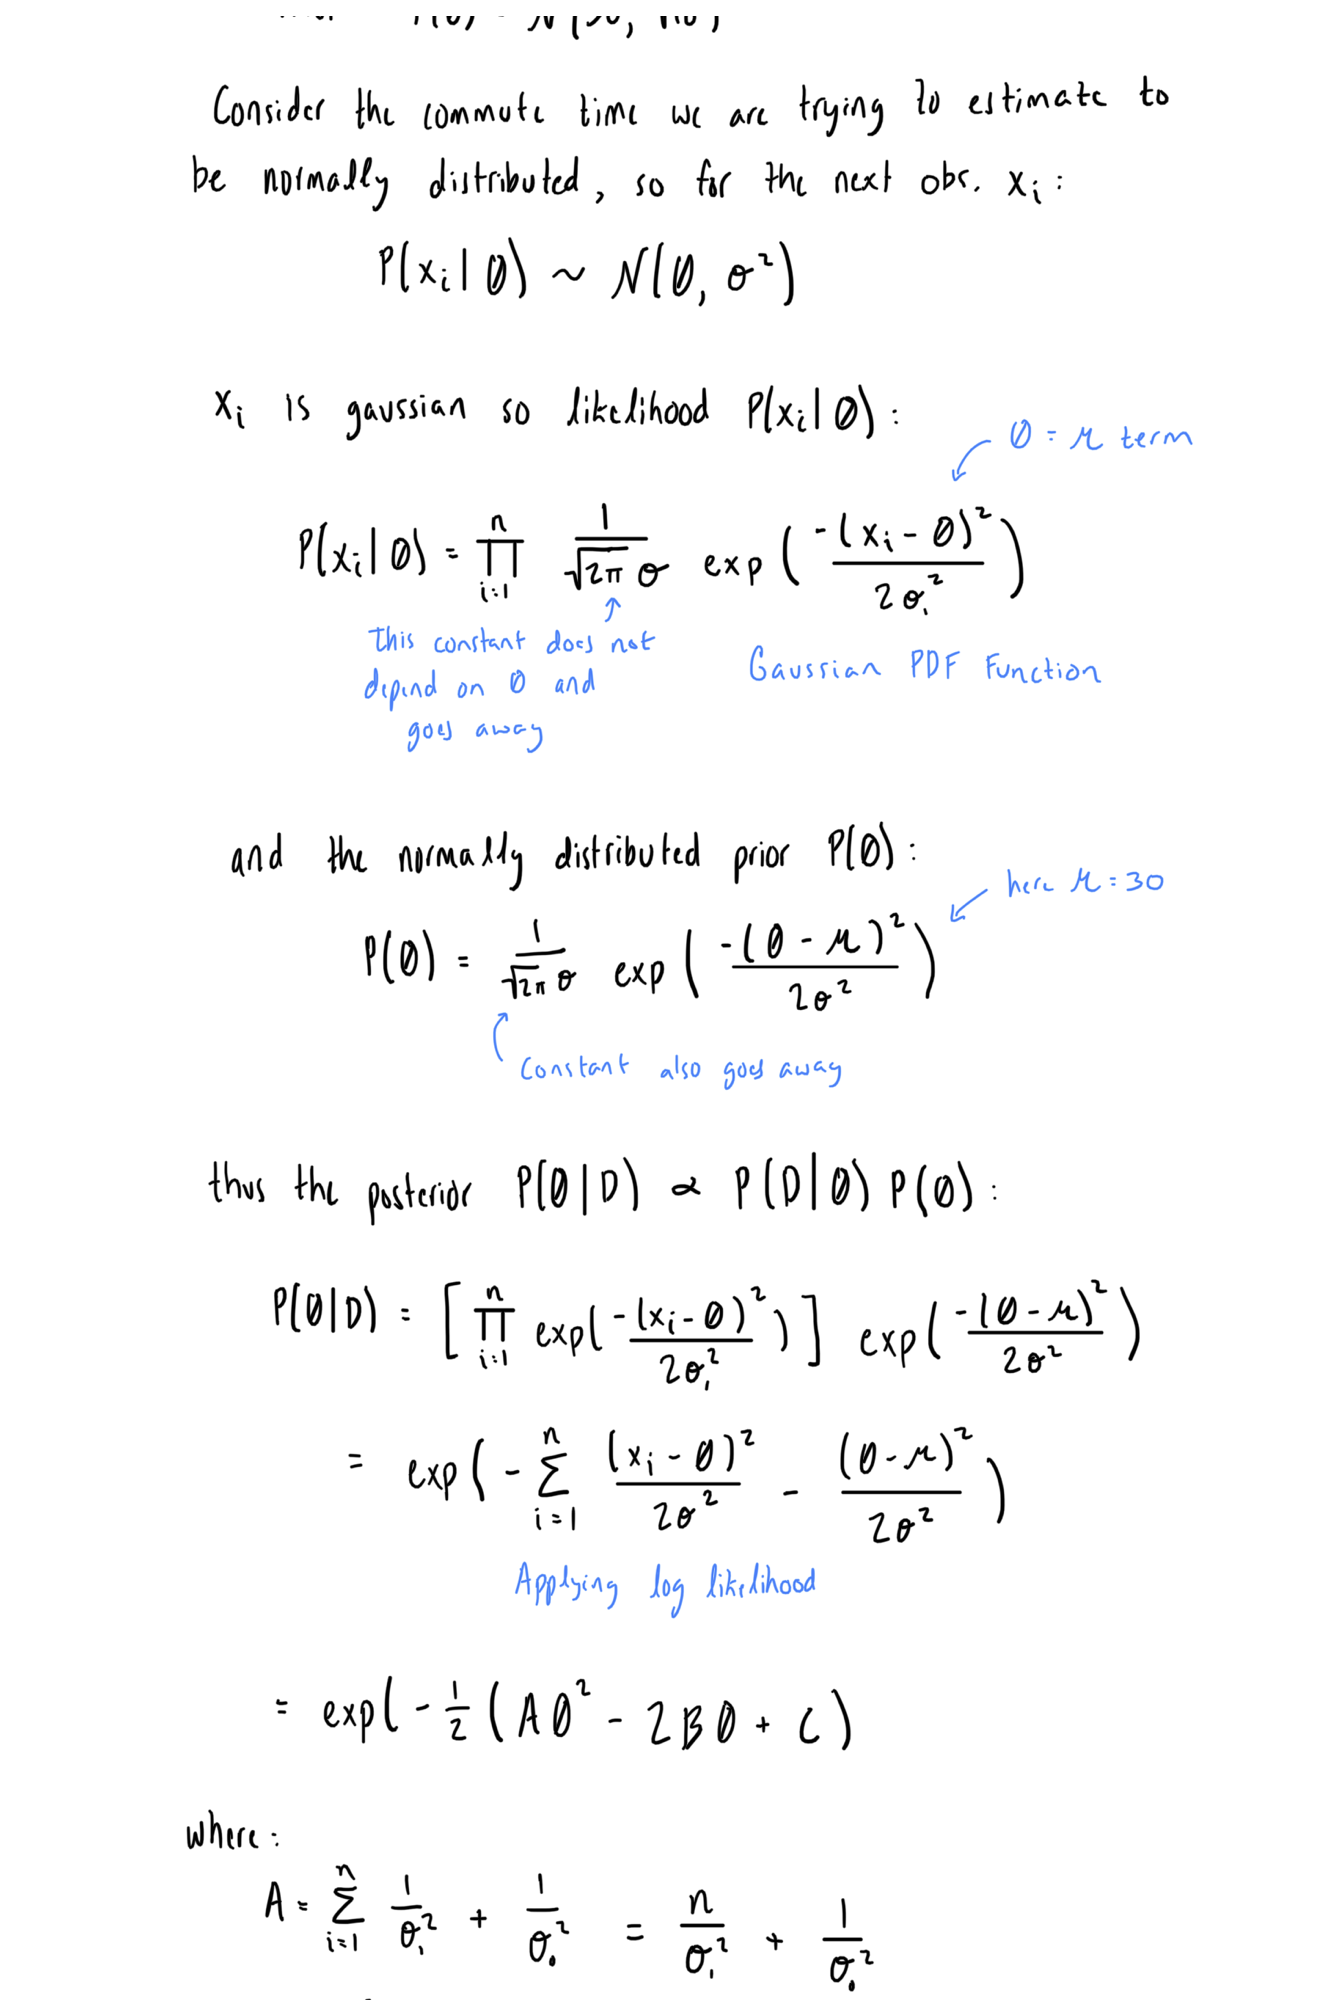 Consider the commute time we are trying to estimate to
be normally distributed, so for the next obs. xᵢ :
P(xᵢ | θ) ~ N(θ, σ²)
xᵢ is gaussian so likelihood P(xᵢ | θ) :
θ = μ term
P(xᵢ | θ) = ∏ᵢ₌₁ⁿ 1/(√2π σ) exp( -(xᵢ - θ)² / 2σ₁² )
This constant does not
depend on θ and
goes away
Gaussian PDF Function
and the normally distributed prior P(θ) :
here μ = 30
P(θ) = 1/(√2π σ) exp( -(θ - μ)² / 2σ² )
Constant also goes away
thus the posterior P(θ | D) ∝ P(D | θ) P(θ) :
P(θ | D) = [ ∏ᵢ₌₁ⁿ exp( -(xᵢ - θ)² / 2σ₁² ) ] exp( -(θ - μ)² / 2σ² )
= exp( - ∑ᵢ₌₁ⁿ (xᵢ - θ)² / 2σ² - (θ - μ)² / 2σ² )
Applying log likelihood
= exp( - 1/2 ( Aθ² - 2Bθ + C )
where :
A = ∑ᵢ₌₁ⁿ 1/σ₁² + 1/σ₀² = n/σ₁² + 1/σ₀²